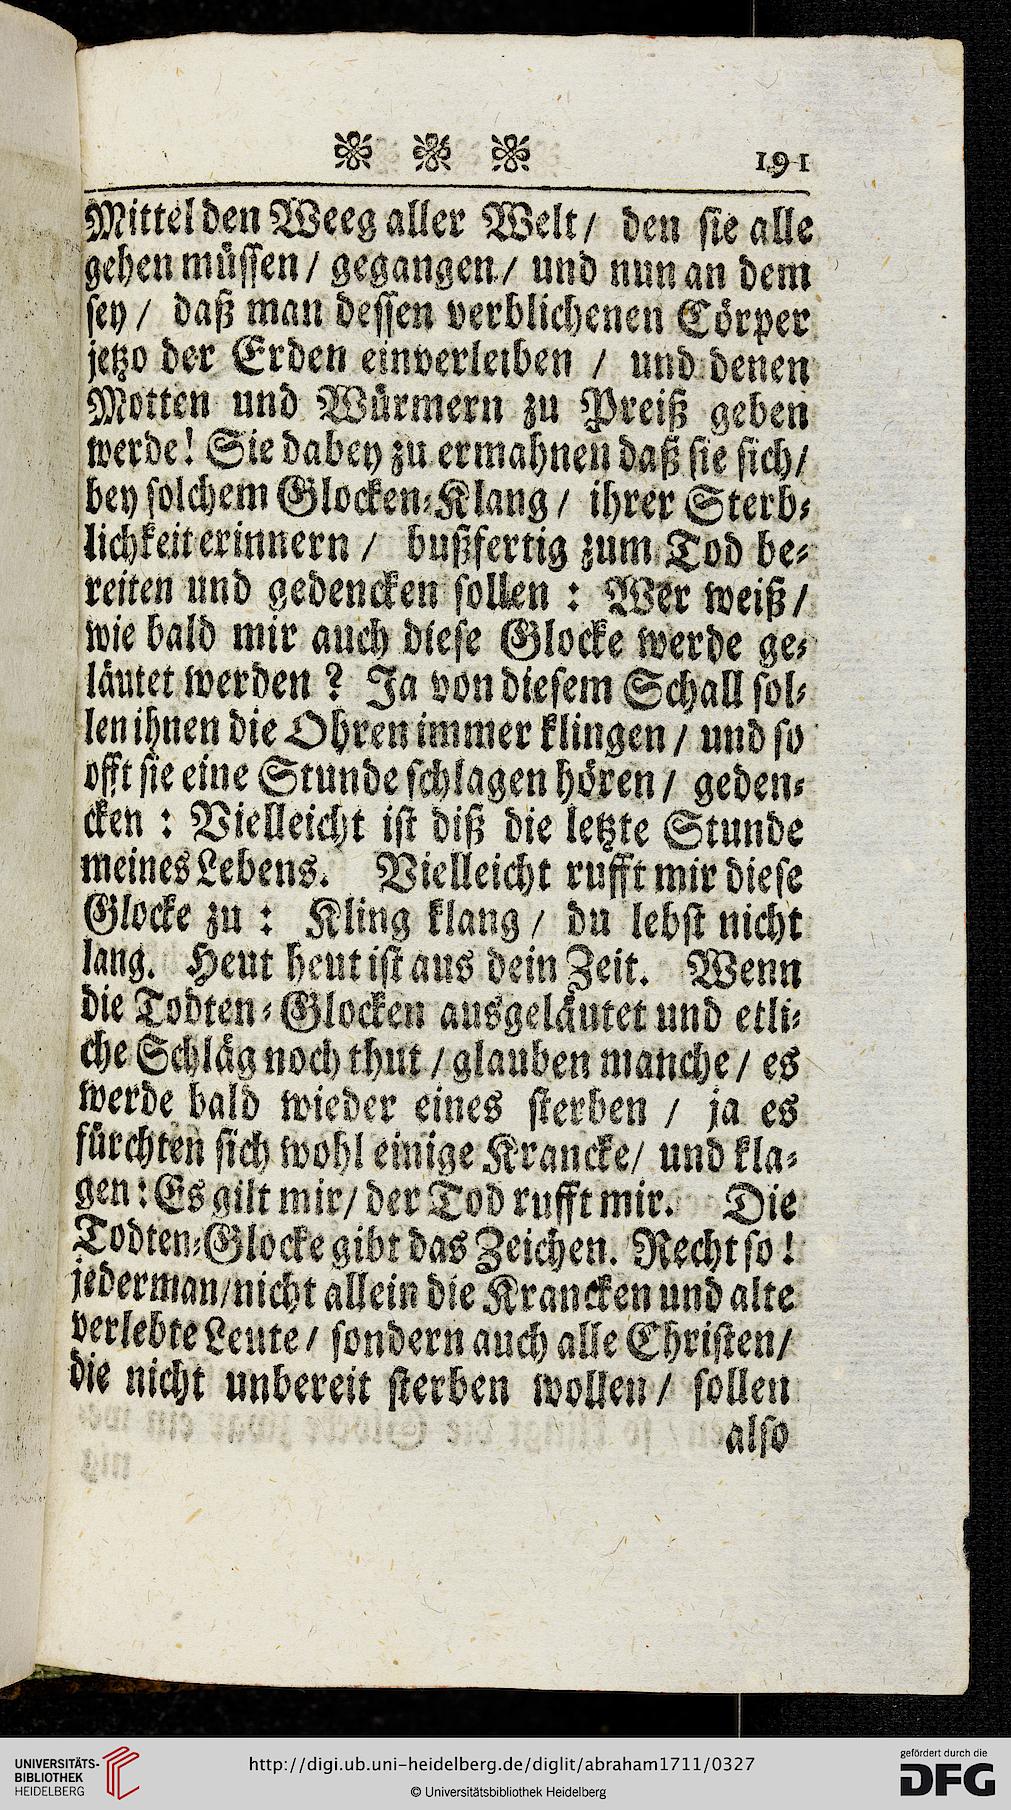 191
Mittel den Weeg aller Welt/ den sie alle
gehen müssen/ gegangen/ und nun an dem
sey/ daß man dessen verblichenen Cörper
jetzo der Erden einverleiben / und denen
Motten und Würmern zu Preiß geben
werde! Sie dabey zu ermahnen daß sie sich/
bey solchem Glocken-Klang/ ihrer Sterb-
lichkeit erinnern / bußfertig zum Tod be-
reiten und gedencken sollen : Wer weiß/
wie bald mir auch diese Glocke werde ge-
läutet werden ? Ja von diesem Schall sol-
len ihnen die Ohren immer klingen / und so
offt sie eine Stunde schlagen hören/ geden-
cken : Vielleicht ist diß die letzte Stunde
meines Lebens. Vielleicht rufft mir diese
Glocke zu : Kling klang/ du lebst nicht
lang. Heut heut ist aus dein Zeit. Wenn
die Todten-Glocken ausgeläutet und etli-
che Schläg noch thut / glauben manche / es
werde bald wieder eines sterben / ja es
fürchten sich wohl einige Krancke/ und kla-
gen: Es gilt mir/ der Tod rufft mir. Die
Todten-Glocke gibt das Zeichen. Recht so!
jederman/nicht allein die Krancken und alte
verlebte Leute/ sondern auch alle Christen/
die nicht unbereit sterben wollen/ sollen
also
UNIVERSITÄTS-
BIBLIOTHEK
HEIDELBERG
http://digi.ub.uni-heidelberg.de/diglit/abraham1711/0327
© Universitätsbibliothek Heidelberg
gefördert durch die
DFG